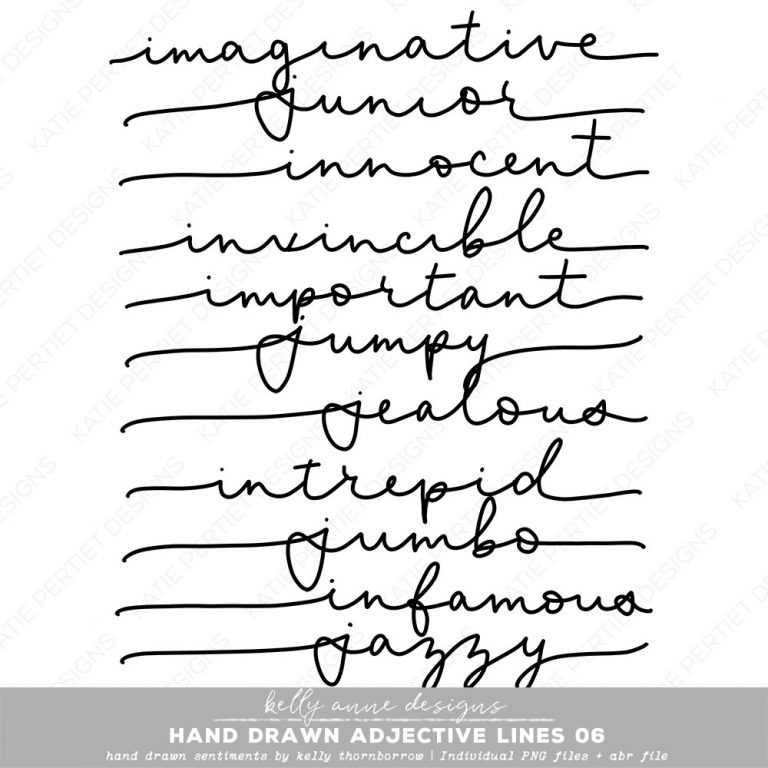 imaginative
junior
innocent
invincible
important
jumpy
jealous
intrepid
jumbo
infamous
jazzy
kelly anne designs
HAND DRAWN ADJECTIVE LINES 06
hand drawn sentiments by kelly thornborrow | Individual PNG files + abr file
KATIE PERTIET DESIGNS